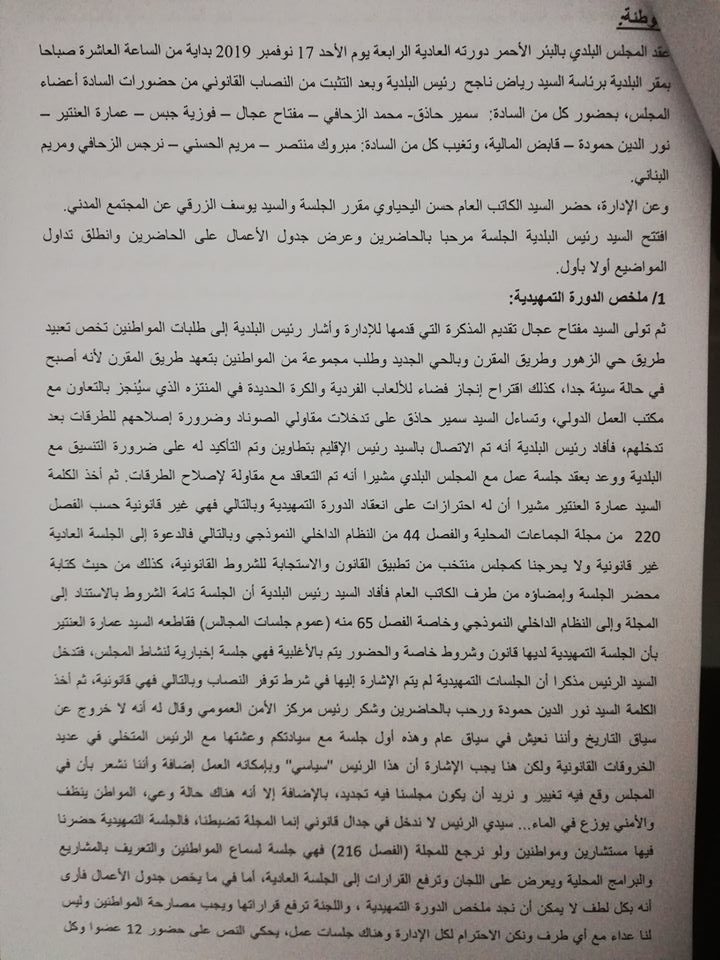 وطئة:
عقد المجلس البلدي بالبئر الأحمر دورته العادية الرابعة يوم الأحد 17 نوفمبر 2019 بداية من الساعة العاشرة صباحا
بمقر البلدية برئاسة السيد رياض ناجح رئيس البلدية وبعد التثبت من النصاب القانوني من حضورات السادة أعضاء
المجلس، بحضور كل من السادة: سمير حاذق- محمد الزحافي – مفتاح عجال – فوزية جبس – عمارة العنتير –
نور الدين حمودة – قابض المالية، وتغيب كل من السادة: مبروك منتصر – مريم الحسني – نرجس الزحافي ومريم
البناني.
وعن الإدارة، حضر السيد الكاتب العام حسن اليحياوي مقرر الجلسة والسيد يوسف الزرقي عن المجتمع المدني.
افتتح السيد رئيس البلدية الجلسة مرحبا بالحاضرين وعرض جدول الأعمال على الحاضرين وانطلق تداول
المواضيع أولا بأول.
1/ ملخص الدورة التمهيدية:
ثم تولى السيد مفتاح عجال تقديم المذكرة التي قدمها للإدارة وأشار رئيس البلدية إلى طلبات المواطنين تخص تعبيد
طريق حي الزهور وطريق المقرن وبالحي الجديد وطلب مجموعة من المواطنين بتعهد طريق المقرن لأنه أصبح
في حالة سيئة جدا، كذلك اقتراح إنجاز فضاء للألعاب الفردية والكرة الحديدة في المنتزه الذي سيُنجز بالتعاون مع
مكتب العمل الدولي، وتساءل السيد سمير حاذق على تدخلات مقاولي الصوناد وضرورة إصلاحهم للطرقات بعد
تدخلهم، فأفاد رئيس البلدية أنه تم الاتصال بالسيد رئيس الإقليم بتطاوين وتم التأكيد له على ضرورة التنسيق مع
البلدية ووعد بعقد جلسة عمل مع المجلس البلدي مشيرا أنه تم التعاقد مع مقاولة لإصلاح الطرقات. ثم أخذ الكلمة
السيد عمارة العنتير مشيرا أن له احترازات على انعقاد الدورة التمهيدية وبالتالي فهي غير قانونية حسب الفصل
220 من مجلة الجماعات المحلية والفصل 44 من النظام الداخلي النموذجي وبالتالي فالدعوة إلى الجلسة العادية
غير قانونية ولا يحرجنا كمجلس منتخب من تطبيق القانون والاستجابة للشروط القانونية، كذلك من حيث كتابة
محضر الجلسة وإمضاؤه من طرف الكاتب العام فأفاد السيد رئيس البلدية أن الجلسة تامة الشروط بالاستناد إلى
المجلة وإلى النظام الداخلي النموذجي وخاصة الفصل 65 منه (عموم جلسات المجالس) فقاطعه السيد عمارة العنتير
بأن الجلسة التمهيدية لديها قانون وشروط خاصة والحضور يتم بالأغلبية فهي جلسة إخبارية لنشاط المجلس، فتدخل
السيد الرئيس مذكرا أن الجلسات التمهيدية لم يتم الإشارة إليها في شرط توفر النصاب وبالتالي فهي قانونية، ثم أخذ
الكلمة السيد نور الدين حمودة ورحب بالحاضرين وشكر رئيس مركز الأمن العمومي وقال له أنه لا خروج عن
سياق التاريخ وأننا نعيش في سياق عام وهذه أول جلسة مع سيادتكم وعشتها مع الرئيس المتخلي في عديد
الخروقات القانونية ولكن هنا يجب الإشارة أن هذا الرئيس "سياسي" وبإمكانه العمل إضافة وأننا نشعر بأن في
المجلس وقع فيه تغيير و نريد أن يكون مجلسنا فيه تجديد، بالإضافة إلا أنه هناك حالة وعي، المواطن ينظف
والأمني يوزع في الماء... سيدي الرئيس لا ندخل في جدال قانوني إنما المجلة تضبطنا، فالجلسة التمهيدية حضرنا
فيها مستشارين ومواطنين ولو نرجع للمجلة (الفصل 216) فهي جلسة لسماع المواطنين والتعريف بالمشاريع
والبرامج المحلية ويعرض على اللجان وترفع القرارات إلى الجلسة العادية، أما في ما يخص جدول الأعمال فأرى
أنه بكل لطف لا يمكن أن نجد ملخص الدورة التمهيدية ، واللجنة ترفع قراراتها ويجب مصارحة المواطنين وليس
لنا عداء مع أي طرف ونكن الاحترام لكل الإدارة وهناك جلسات عمل، يحكي النص على حضور 12 عضوا وكل